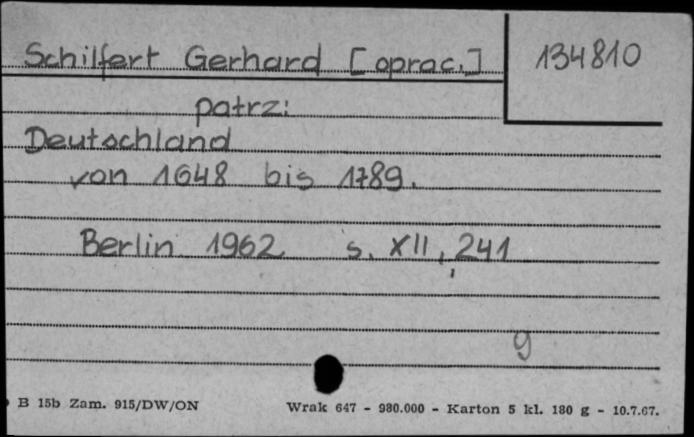 Schilfert Gerhard [oprac.] 134810
patrz:
Deutschland
von 1648 bis 1789.
Berlin 1962 s. XII, 241
g
B 15b Zam. 915/DW/ON Wrak 647 - 980.000 - Karton 5 kl. 180 g - 10.7.67.